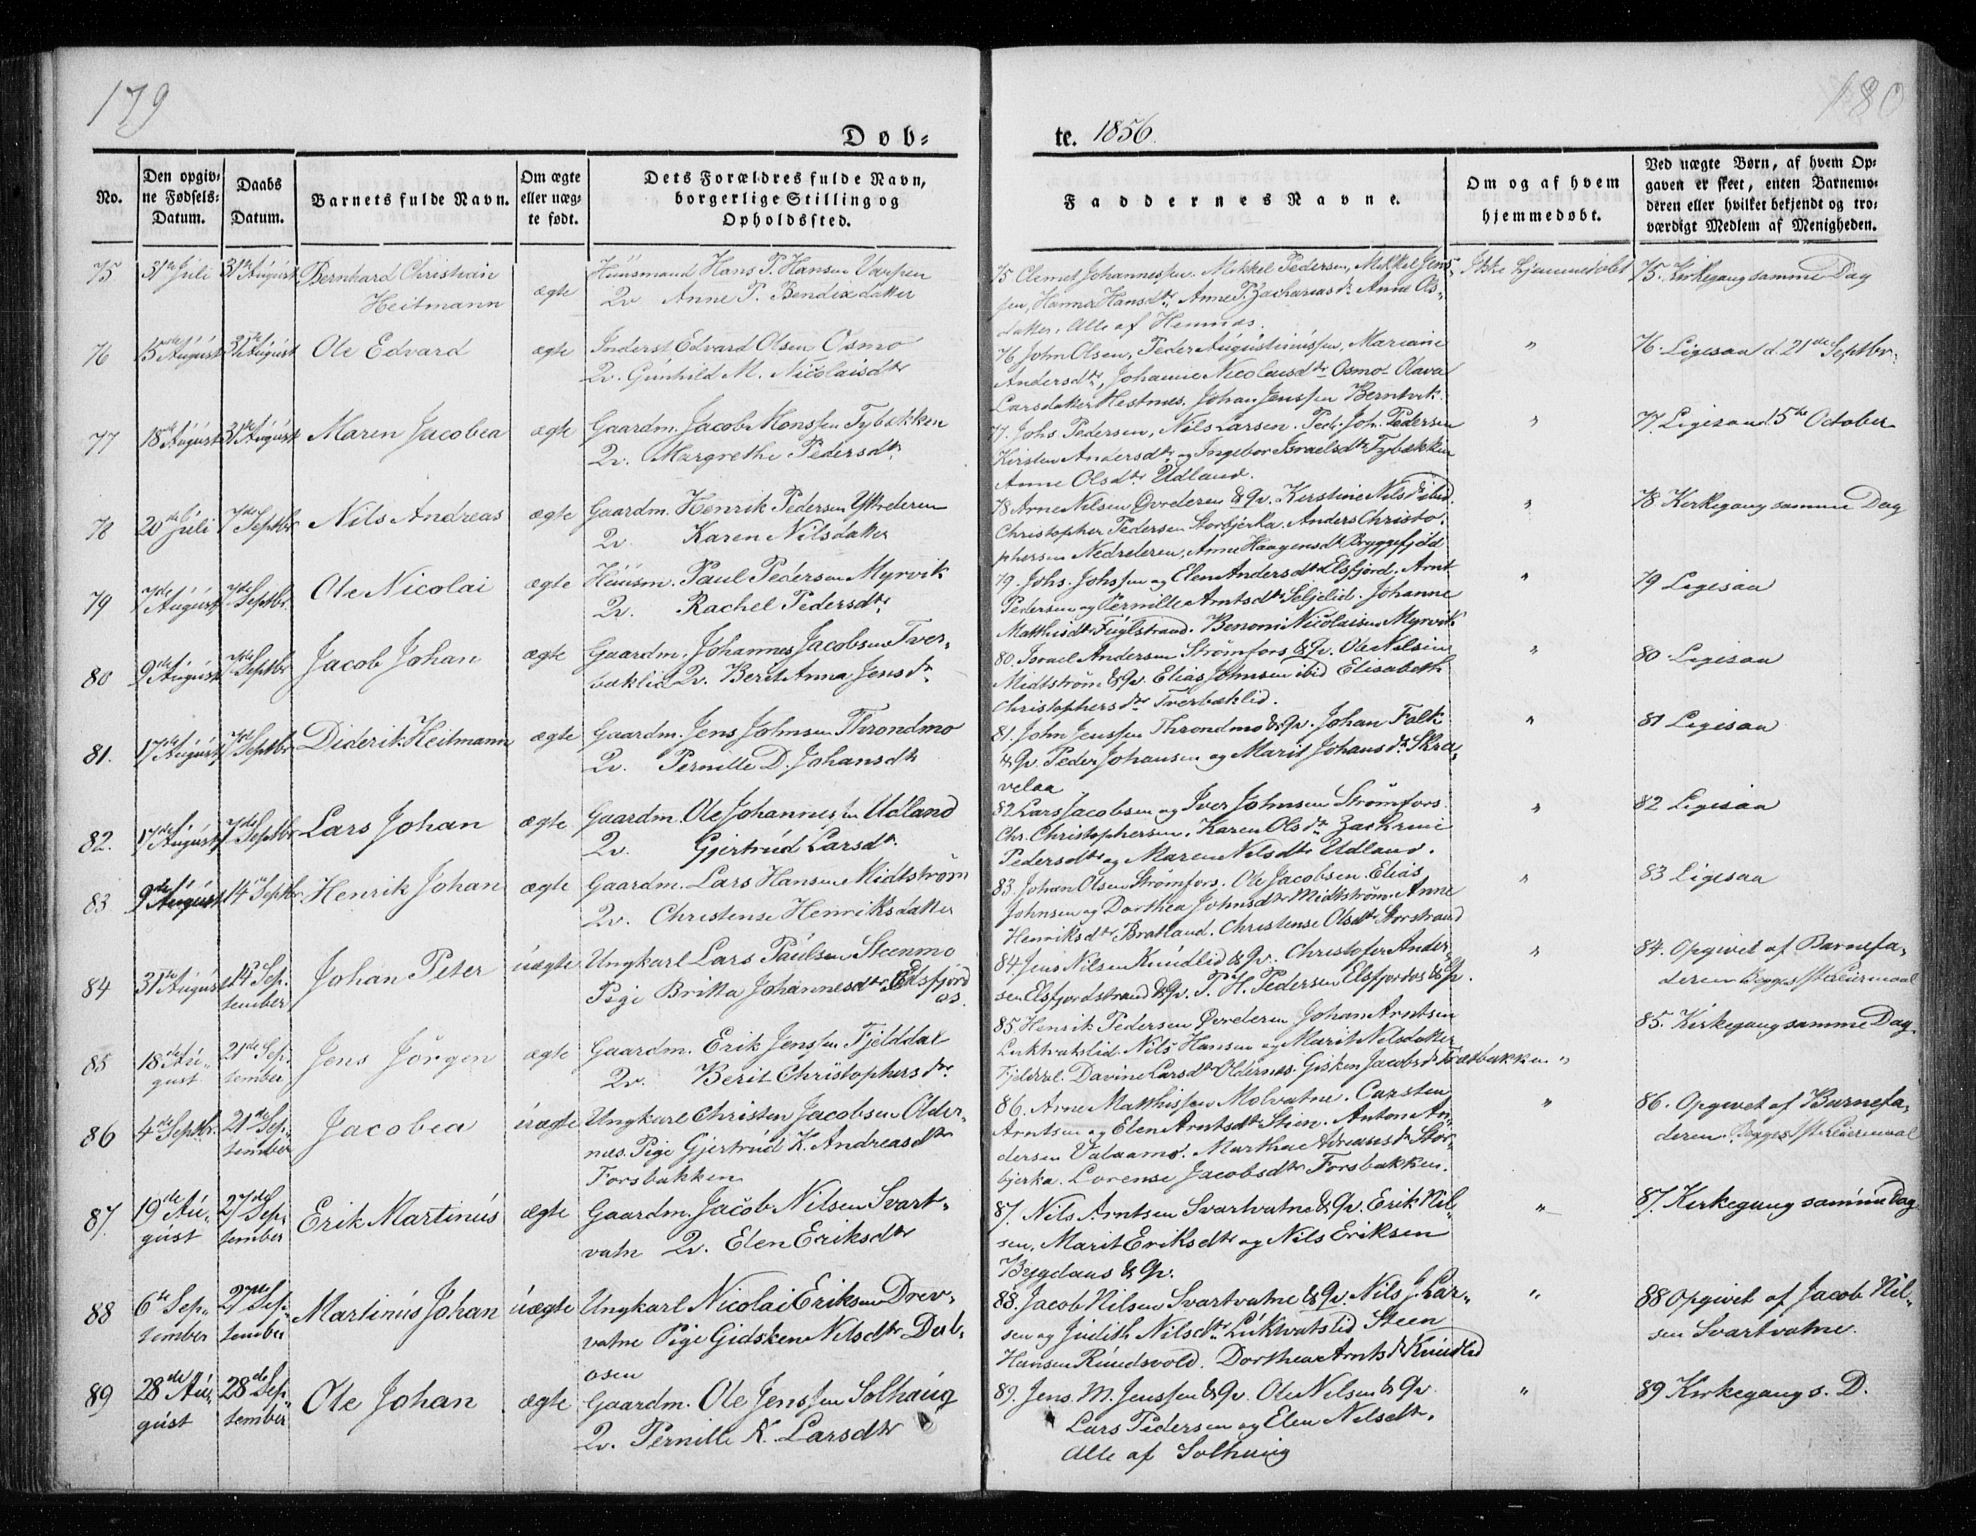 179
180
Døb-
te. 1856.
No.
Den opgiv-
ne Fødsels-
Datum.
Daabs
Datum.
Barnets fulde Navn.
Om ægte
eller uæg-
te født.
Dets Forældres fulde Navn,
borgerlige Stilling og
Opholdssted.
Faddernes Navne.
Om og af hvem
hjemmedøbt.
Ved uægte Børn, af hvem Op-
gaven er skeet, enten Barnemo-
deren eller hvilket bekjendt og tro-
værdigt Medlem af Menigheden.
75 31te Juli 31te August Bernhard Christian
Heitmann
ægte
Huusmand Hans P. Hansen Varpen
Qv Anne P. Bendixdatter
75 Clemet Johannessen. Mikkel Pedersen, Mikkel Jens-
sen, Hanna Hansdtr, Anne P. Zachariasdr Anne Ols-
datter. Alle af Hemnæs.
Ikke hjemmedøbt
75. Kirkegang samme Dag
76 15de August 31te August Ole Edvard ægte
Inderst Edvard Olsen Osmo
Qv. Gunhild M. Nicolaisdtr
76 John Olsen, Peder Augustinussen, Mariane
Andersdtr, Johanne Nicolausdtr Osmo. Olava
Larsdatter Hestnes. Johan Jenssen Berntvik
"
76. Ligesaa d. 21de Septbr.
77 18de August 31te August Maren Jacobea ægte
Gaardm. Jacob Monssen Tybækken
Qv. Margrethe Pedersdtr
77. Johs Pedersen, Nils Larsen. Ped. Joh. Pedersen
Kirsten Andersdtr og Ingebor Israelsdtr Tybækken
Anne Olsdtr Udland.
"
77. Ligesaa d. 5te October
78 20de Juli 7de Septbr Nils Andreas ægte
Gaardm. Henrik Pedersen Yttrederen
Qv. Karen Nilsdatter
78 Arne Nilsen Øvrderen & Qv. Kerstine Nilsdr ibid.
Christopher Pedersen Storbjerka. Anders Christo-
phersen Nedrederen, Anne Haagensdtr Bryggefjeld
"
78 Kirkegang samme Dag
79 7de August 7de Septbr. Ole Nicolai ægte
Huusm. Paul Pedersen Myrvik
Qv. Rachel Pedersdtr
79. Johs. Johssen og Elen Andersdtr Elsfjord. Arnt
Pedersen og Pernille Arntsdtr Seljelid. Johanne
Matthisdtr Fuglstrand. Benoni Nicolaisen Myrvik
"
79 Ligesaa
80 9de August 7de Septbr Jacob Johan ægte
Gaardm. Johannes Jacobsen Tver-
bæklid Qv. Berit Anna Jensdr
80. Israel Andersen Strømfors & Qv. Ole Nilsen
Midtstrøm & Qv. Elias Johnsen ibid Elisabeth
Christophersdtr Tverbæklid.
"
80 Ligesaa
81. 17de August 7de Septbr. Diderik Heitmann ægte
Gaardm. Jens Johnsen Throndmo
Qv. Pernille D. Johansdtr
81. John Jenssen Throndmo & Qv. Johan Falk
& Qv. Peder Johansen og Marit Johansdr Skra-
velaa
"
81 Ligesaa
82. 17de August 7de Septbr. Lars Johan ægte
Gaardm. Ole Johannessen Udland
Qv. Gjertrud Larsdtr
82 Lars Jacobsen og Iver Johnsen Strømfors.
Chr. Christophersen. Karen Olsdtr Zachrine
Pedersdtr og Maren Nilsdtr Udland.
"
82 Ligesaa
83 9de August 14de Septbr. Henrik Johan ægte
Gaardm. Lars Hansen Midtstrøm
Qv. Christense Henriksdatter
83. Johan Olsen Strømfors. Ole Jacobsen. Elias
Johnsen og Dorthea Johnsdtr Midtstrøm. Anne
Henriksdtr Bratland. Christense Olsdtr Storstrand
"
83 Ligesaa
84 31te August 14de Sep-
tember
Johan Peter uægte
Ungkarl Lars Paulsen Steenmo
Pige Brikta Johannesdtr Elsfjord
os.
84 Jens Nilsen Knudlid & Qv. Christofer Ander-
sen Elsfjordstrand & Qv. P. H. Pedersen Elsfjordos & Qv.
"
84. Opgivet af Barnefa-
deren Begges 1ste Leiermaal
85 18de Au-
gust
21de Sep-
tember
Jens Jørgen ægte
Gaardm. Erik Jenssen Fjelddal
Qv. Berit Christophersdr
85. Henrik Pedersen Øvrderen Johan Arntsen
Luktvatslid. Nils Hansen og Marit Nilsdatter
Fjelddal. Davine Larsdtr Oldernes. Gisken Jacobsdr Trætbakken "
85. Kirkegang samme Dag
86 4de Septbr. 21de Sep-
tember
Jacobea uægte
Ungkarl Christen Jacobsen Older-
næs. Pige Gjertrud K. Andreasdtr
Forsbakken
86. Arne Matthissen Molvatne. Carsten
Arntsen og Elen Arntsdtr Stien. Anton An-
dersen Valaamo. Marthae Adriansdr Stor-
bjerka. Lorense Jacobsdtr Forsbakken.
"
86. Opgivet af Barnefa-
deren. Begges 1ste Leiermaal
87. 19de Au-
gust
27de Sep-
tember
Erik Martinus ægte
Gaardm. Jacob Nilsen Svart-
vatn Qv. Elen Eriksdtr
87. Nils Arntsen Svartvatne & Qv. Erik Nil-
sen, Marit Eriksdtr og Nils Eriksen
Bygdaas & Qv.
"
87. Kirkegang samme Dag
88 6te Sep-
tember
27de Sep-
tember
Martinus Johan uægte
Ungkarl Nicolai Eriksen Drev-
vatne Pige Gidsken Nilsdtr Dal-
osen
88. Jacob Nilsen Svartvatne & Qv. Nils J. Lar-
sen og Judith Nilsdtr Luktvatslid Steen
Hansen Rundsvold. Dorthea Arntsdr Knudlid
"
88 Opgivet af Jacob Nil-
sen Svartvatne.
89 28de Au-
gust
28de Sep-
tember
Ole Johan ægte
Gaardm. Ole Jenssen Solhaug
Qv. Pernille K. Larsdtr
89. Jens M. Jenssen & Qv. Ole Nilsen & Qv.
Lars Pedersen og Elen Nilsdtr.
Alle af Solhaug
"
89 Kirkegang s. D.